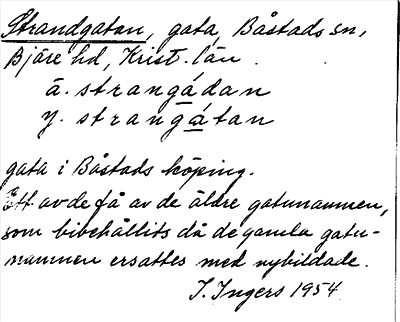 Strandgatan, gata, Båstads sn,
Bjäre hd, Krist. län.
ä. strangádan
y. strangátan
gata i Båstads köping.
Ett av de få av de äldre gatunamnen,
som bibehållits då de gamla gatu-
namnen ersattes med nybildade.
I. Ingers 1954.